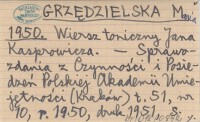 GRZĘDZIELSKA Maria
1950. Wiersz toniczny Jana
Kasprowicza. — Sprawo-
zdania z Czynności i Posie-
dzeń Polskiej Akademii Umie-
jętności (Kraków) t. 51, nr
10, r. 1950, druk 1951, s.